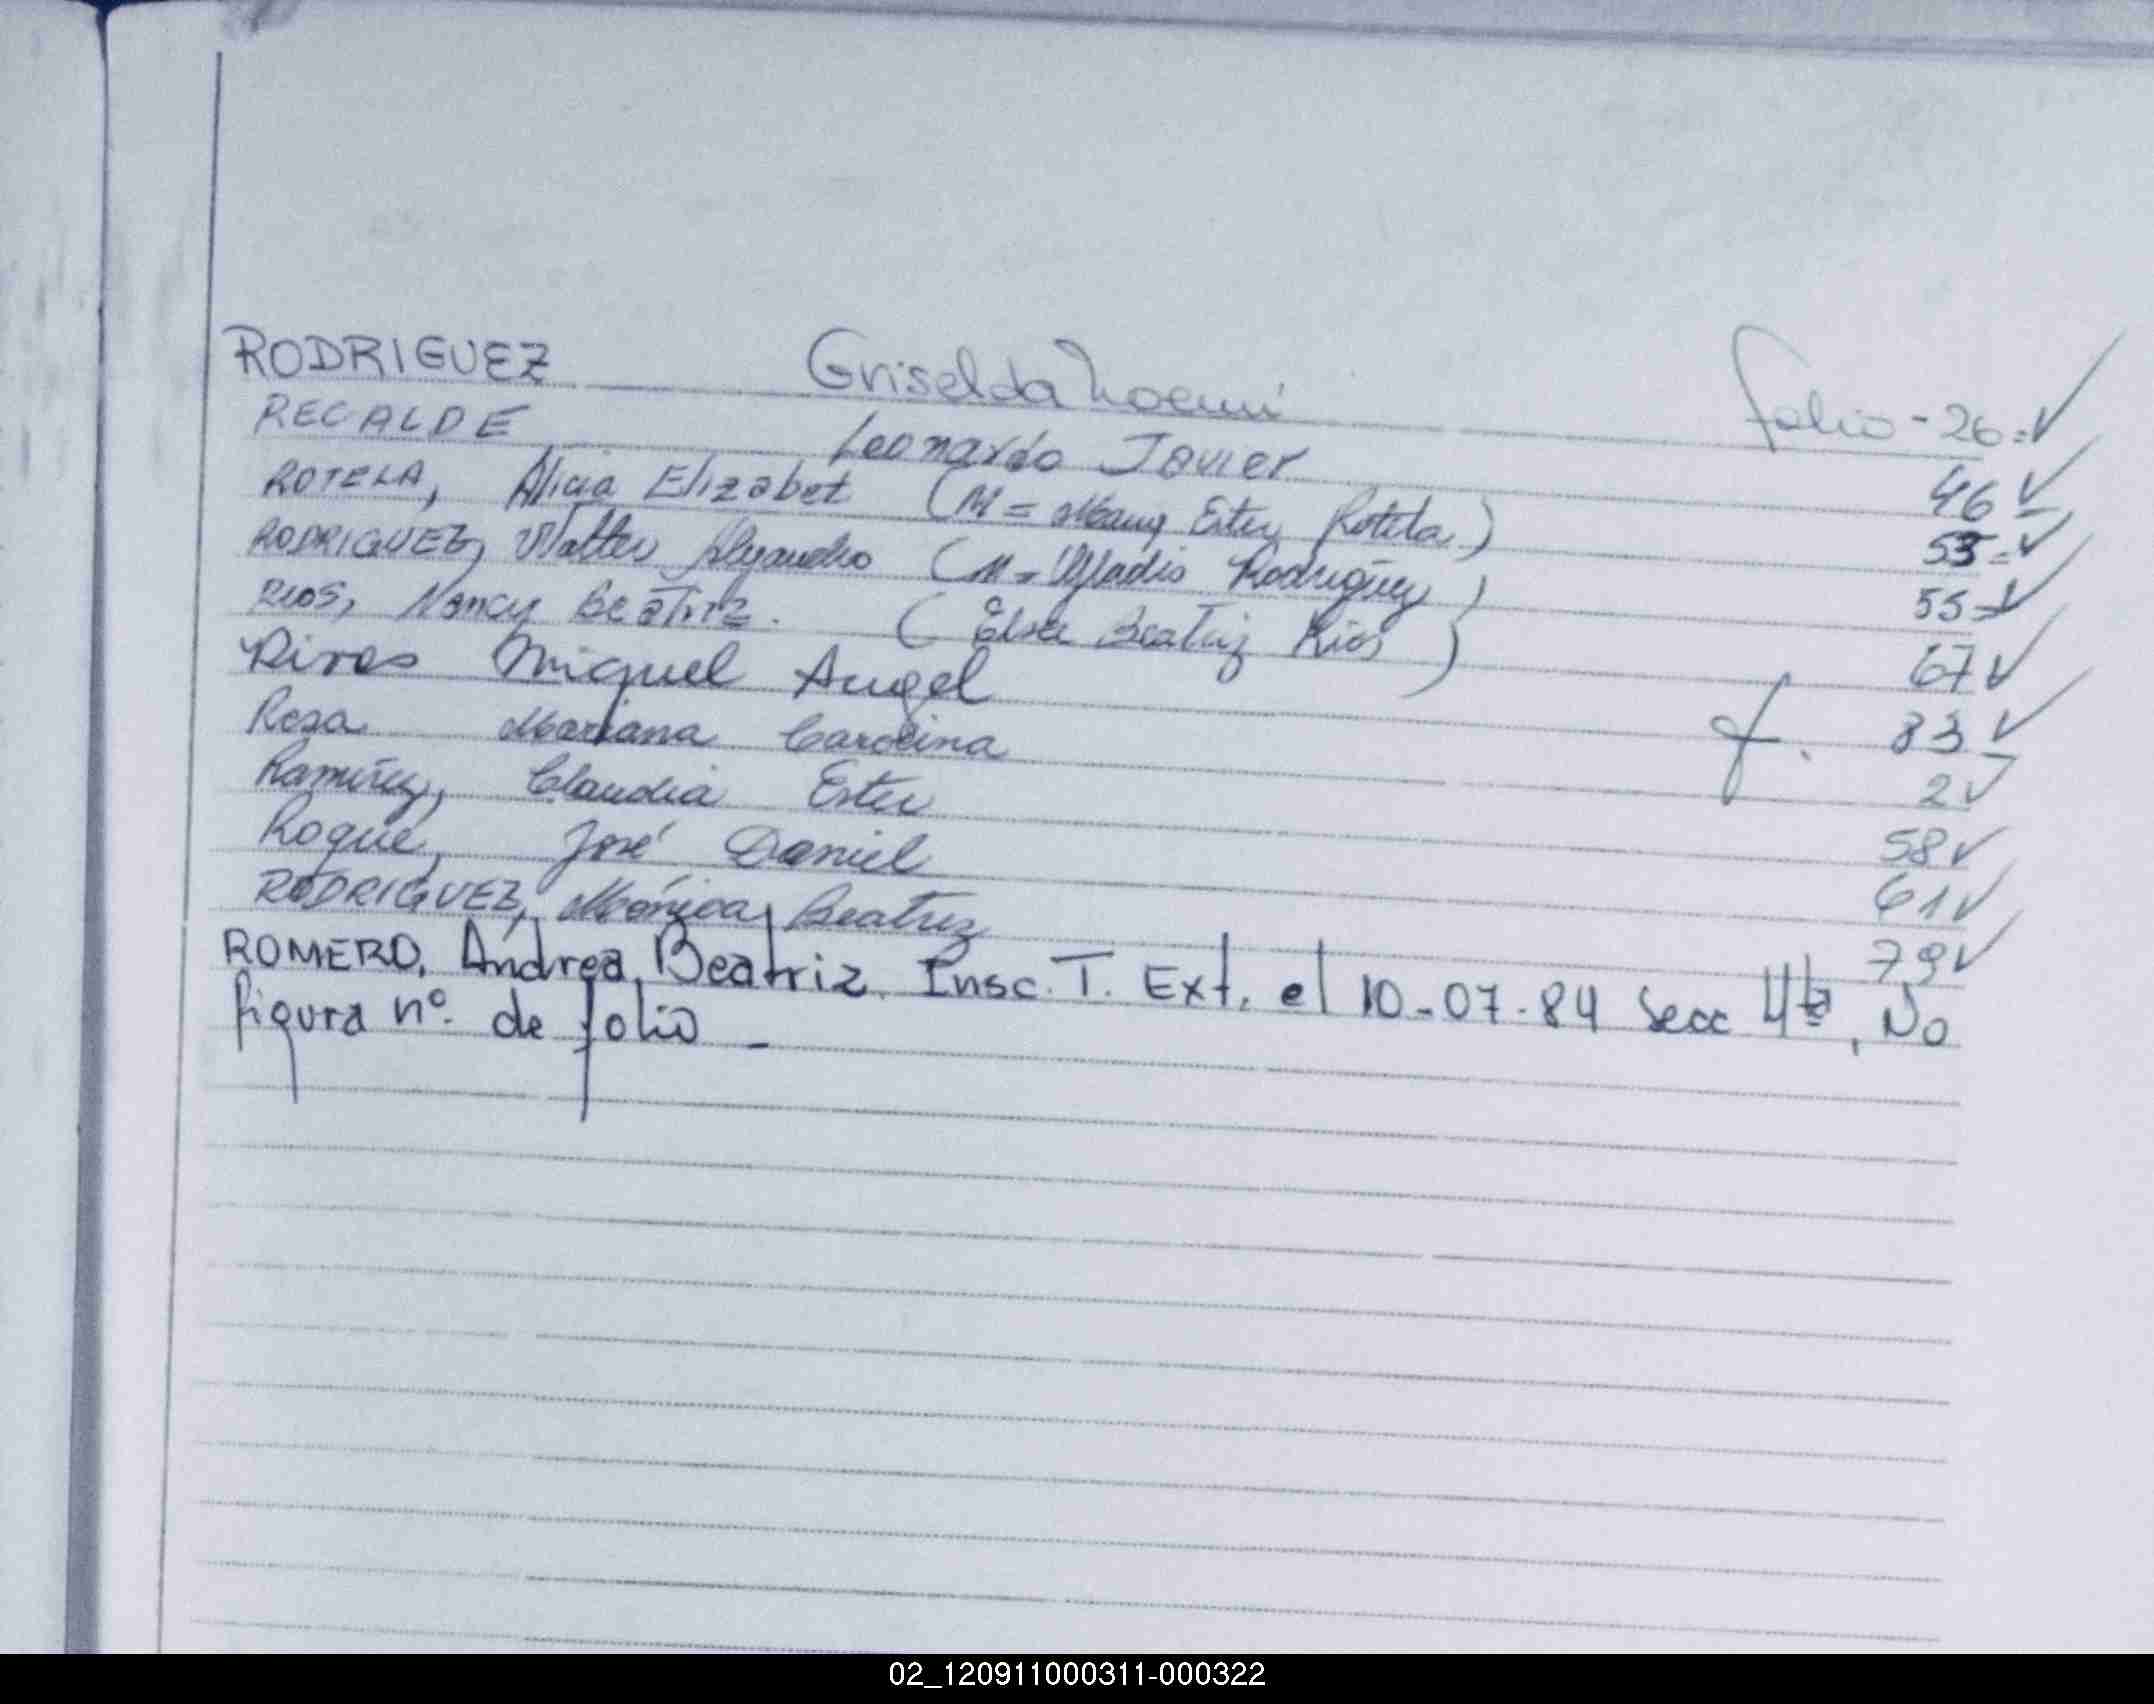 RODRIGUEZ Griselda Noemi folio - 26=✓
RECALDE Leonardo Javier 46 ✓
ROTELA, Alicia Elizabet (M = Many Ester Rotela) 53=✓
RODRIGUEZ, Walter Alejandro (M= Gladis Rodriguez) 55=✓
RIOS, Nancy Beatriz. (Elsa Beatriz Rios) 67 ✓
Rivas Miguel Angel 83 ✓
Rosa Mariana Carolina f. 2 ✓
Ramírez, Claudia Ester 58 ✓
Roque, José Daniel 61 ✓
RODRIGUEZ, Mónica Beatriz 79 ✓
ROMERO, Andrea Beatriz. Insc. T. Ext. el 10-07-84 Secc 4ta, No
figura nº. de folio -
02_120911000311-000322